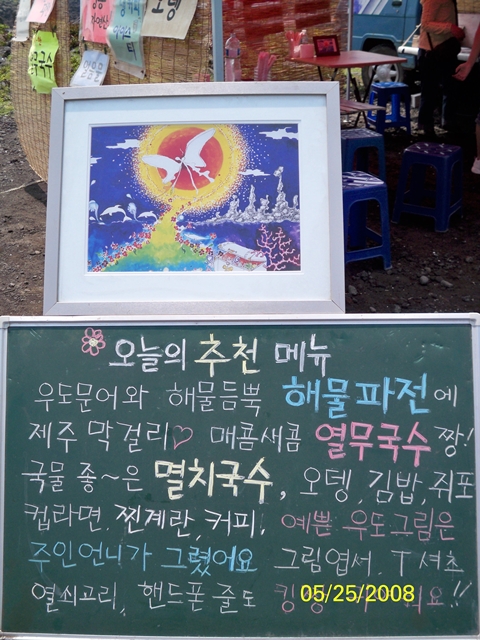 열무국수
오뎅
오늘의 추천 메뉴
우도문어와 해물듬뿍 해물파전에
제주 막걸리♡ 매콤새콤 열무국수 짱!
국물 좋~은 멸치국수, 오뎅, 김밥, 쥐포
컵라면, 찐계란, 커피, 예쁜 우도그림은
주인언니가 그렸어요 그림엽서, T셔츠
열쇠고리, 핸드폰 줄도
05/25/2008